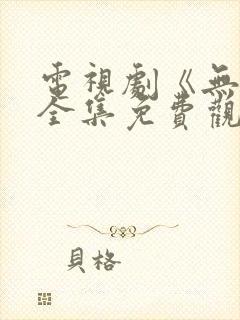 電視劇《無
全集免費觀
貝格